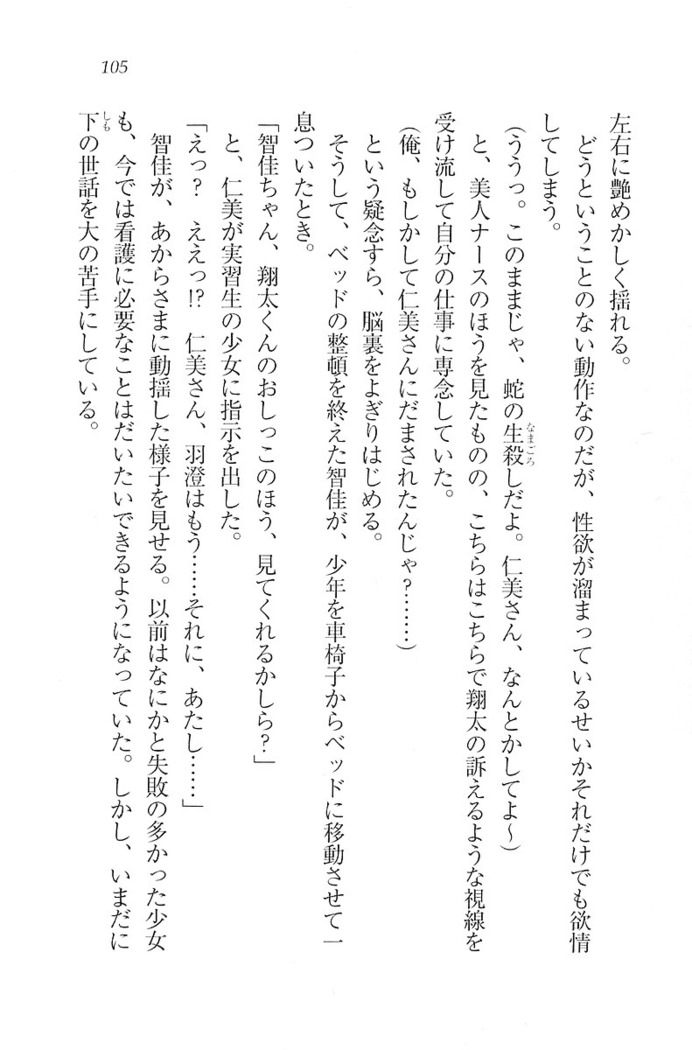 105
左右に艶めかしく揺れる。
どうということのない動作なのだが、性欲が溜まっているせいかそれだけでも欲情
してしまう。
(ううっ。このままじゃ、蛇の生殺しだよ。仁美さん、なんとかしてよ〜)
なまごろ
と、美人ナースのほうを見たものの、こちらはこちらで翔太の訴えるような視線を
受け流して自分の仕事に専念していた。
(俺、もしかして仁美さんにだまされたんじゃ?………)
という疑念すら、脳裏をよぎりはじめる。
そうして、ベッドの整頓を終えた智佳が、少年を車椅子からベッドに移動させて一
息ついたとき。
「智佳ちゃん、翔太くんのおしっこのほう、見てくれるかしら?」
と、仁美が実習生の少女に指示を出した。
「えっ? ええっ!? 仁美さん、羽澄はもう……それに、あたし……」
智佳が、あからさまに動揺した様子を見せる。以前はなにかと失敗の多かった少女
も、今では看護に必要なことはだいたいできるようになっていた。しかし、いまだに
下の世話を大の苦手にしている。
しも